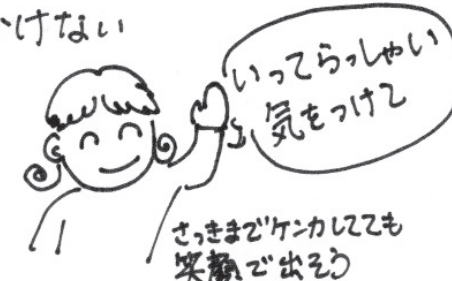 けない
いってらっしゃい
気をつけて
さっきまでケンカしてても
笑顔で出そう